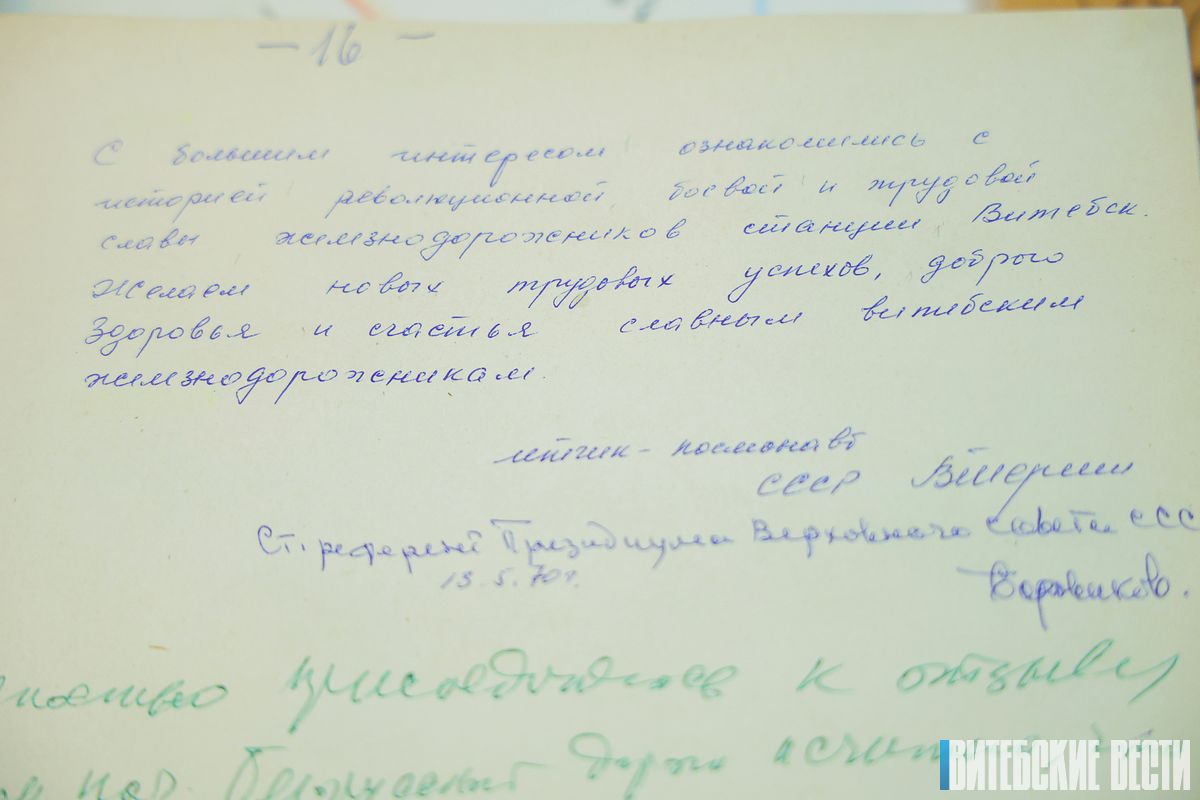 — 16 —
С большим интересом ознакомились с
историей революционной, боевой и трудовой
славы железнодорожников станции Витебск.
Желаем новых трудовых успехов, доброго
здоровья и счастья славным витебским
железнодорожникам.
летчик-космонавт
СССР
Ст. референт Президиума Верховного Совета ССС
13.5.70г.
присоединяюсь к отзыву
ВИТЕБСКИЕ ВЕСТИ